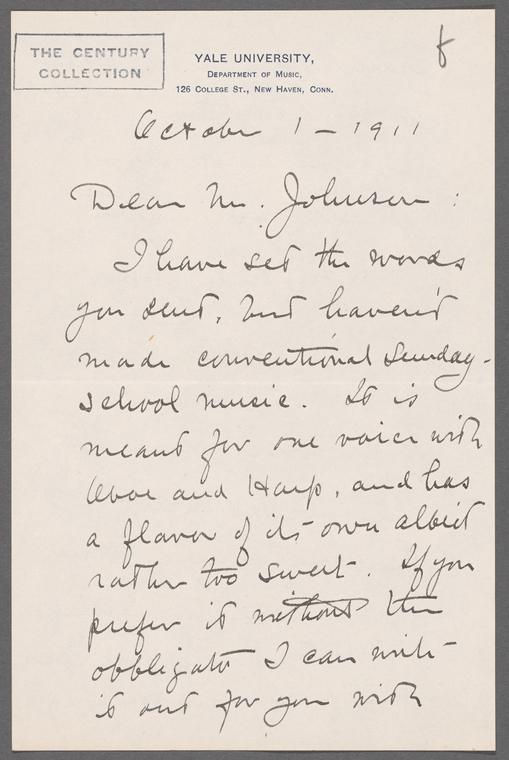 THE CENTURY
COLLECTION
YALE UNIVERSITY,
DEPARTMENT OF MUSIC,
126 COLLEGE ST., NEW HAVEN, CONN.
October 1 - 1911
Dear Mr. Johnson :
I have set the words
you sent, but haven't
made conventional Sunday-
school music. It is
meant for one voice with
Oboe and Harp, and has
a flavor of its own albeit
rather too sweet. If you
prefer it without the
obbligato I can write
it out for you with